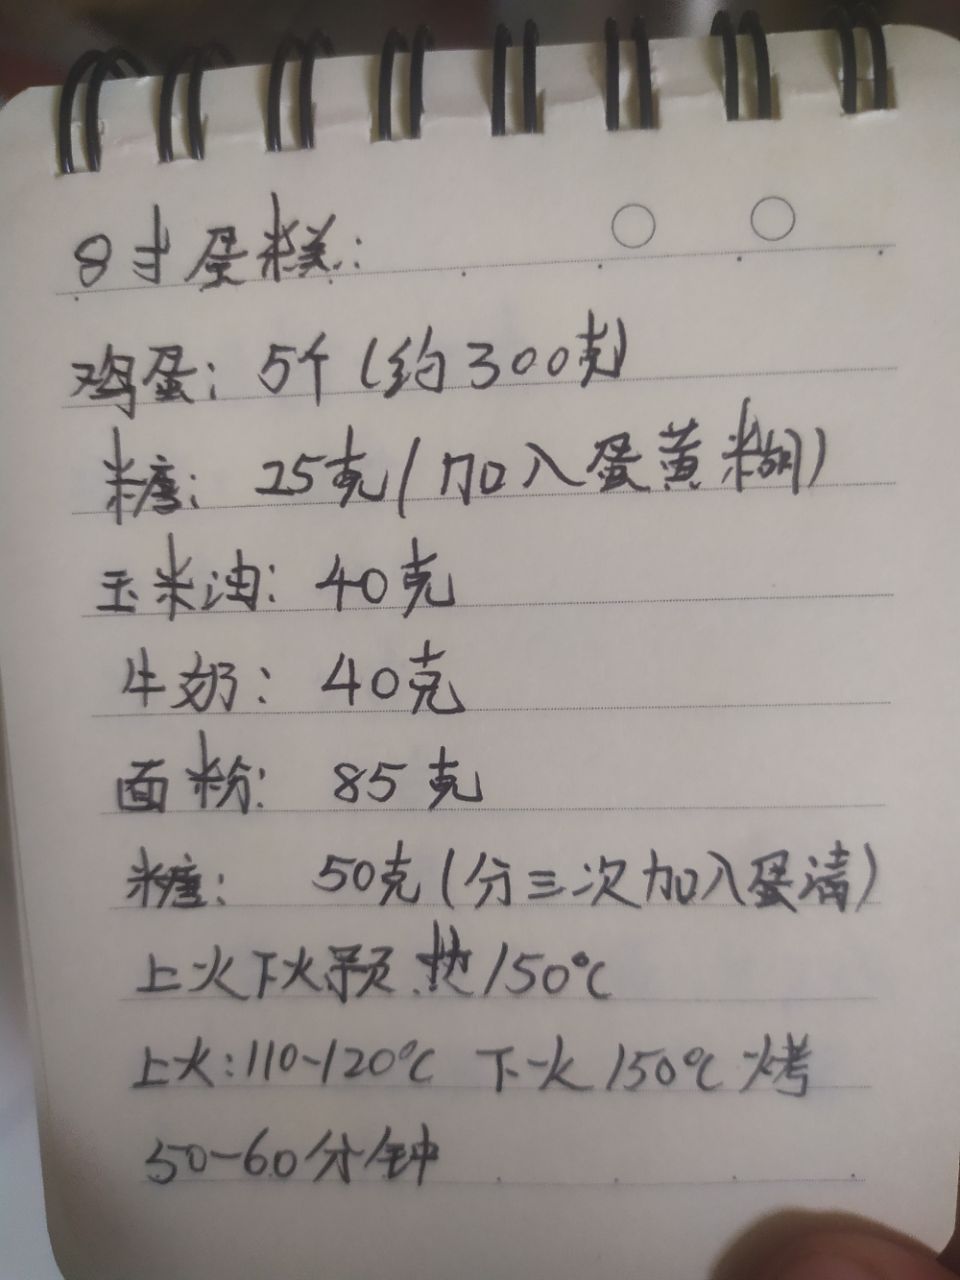 8寸蛋糕:
鸡蛋: 5个(约300克)
米糖: 25克(加入蛋黄糊)
玉米油: 40克
牛奶: 40克
面粉: 85克
米糖: 50克(分三次加入蛋清)
上火下火预热150℃
上火:110-120℃ 下火150℃烤
50-60分钟